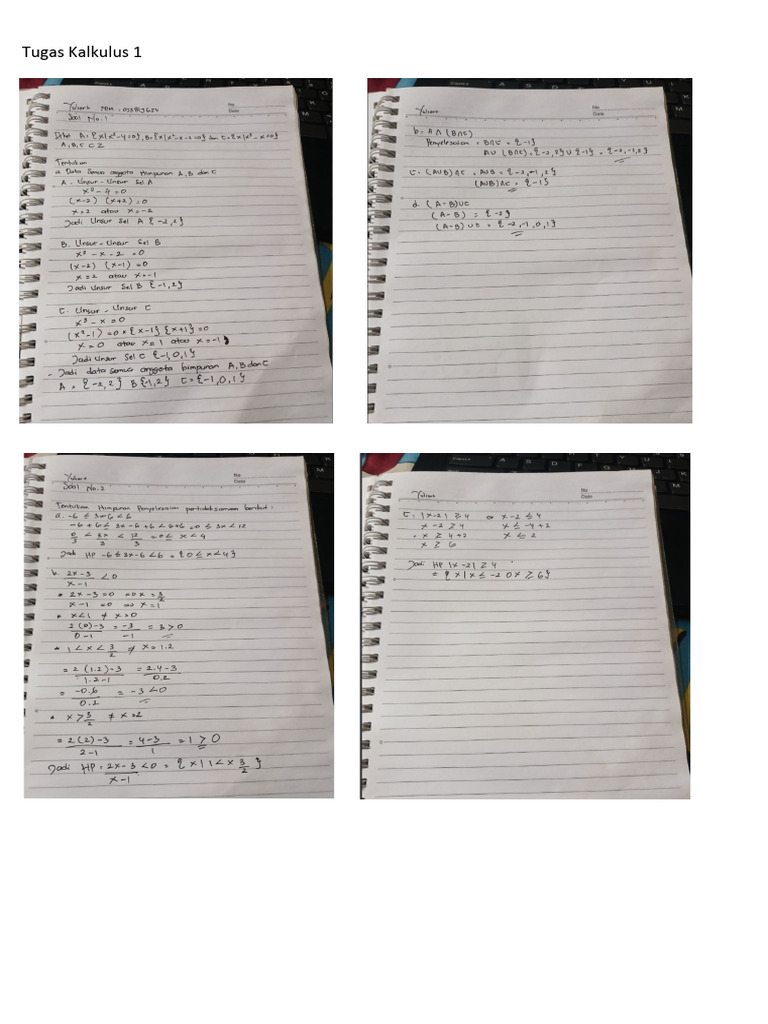 Tugas Kalkulus 1
No
Date
Soal No. 1
Diket A = {x|x²-4=0}, B={x|x²-x-2=0} dan C={x|x³-x=0}
A, B, C ⊂ Z
Tentukan
a. Data semua anggota himpunan A, B dan C
A. Unsur-Unsur Sel A
x² - 4 = 0
(x-2) (x+2) = 0
x = 2 atau x = -2
Jadi Unsur Sel A {-2, 2}
B. Unsur-Unsur Sel B
x² - x - 2 = 0
(x-2) (x-1) = 0
x = 2 atau x = -1
Jadi Unsur Sel B {-1, 2}
C. Unsur-Unsur C
x³ - x = 0
(x²-1) = 0 x {x-1} {x+1} = 0
x = 0 atau x = 1 atau x = -1
Jadi Unsur Sel C {-1, 0, 1}
- Jadi data semua anggota himpunan A, B dan C
A = {-2, 2} B {-1, 2} C = {-1, 0, 1}
Yuliana
No
Date
b = A ∩ (B∩C)
Penyelesaian = B∩C = {-1}
A∪(B∩C) = {-2, 2} ∪ {-1} = {-2, -1, 2}
c = (A∪B)∩C = A∪B = {-2, -1, 2}
(A∪B)∩C = {-1}
d. (A-B)∪C
(A-B) = {-2}
(A-B)∪C = {-2, -1, 0, 1}
No
Date
Soal No. 2
Tentukan Himpunan Penyelesaian pertidaksamaan berikut:
a. -6 ≤ 3x-6 < 6
-6+6 ≤ 3x-6+6 < 6+6 = 0 ≤ 3x < 12
0/3 < 3x/3 < 12/3 = 0 ≤ x < 4
Jadi HP -6 ≤ 3x-6 < 6 = {0 ≤ x < 4}
b. 2x-3/x-1 < 0
* 2x-3 = 0 ⇔ x = 3/2
x-1 = 0 ⇔ x = 1
* x < 1 ≠ x = 0
2(0)-3/0-1 = -3/-1 = 3 > 0
* 1 < x < 3/2 ≠ x = 1.2
= 2(1.2)-3/1.2-1 = 2.4-3/0.2
= -0.6/0.2 = -3 < 0
* x > 3/2 ≠ x = 2
= 2(2)-3/2-1 = 4-3/1 = 1 > 0
Jadi HP = 2x-3/x-1 < 0 = {x | 1 < x 3/2}
Yuliana
No
Date
C = |x-2| ≥ 4 or x-2 ≤ 4
x-2 ≥ 4 x ≤ -4+2
x ≥ 4+2 x ≤ 2
x ≥ 6
Jadi HP |x-2| ≥ 4
= {x | x ≤ -2 0 x ≥ 6}